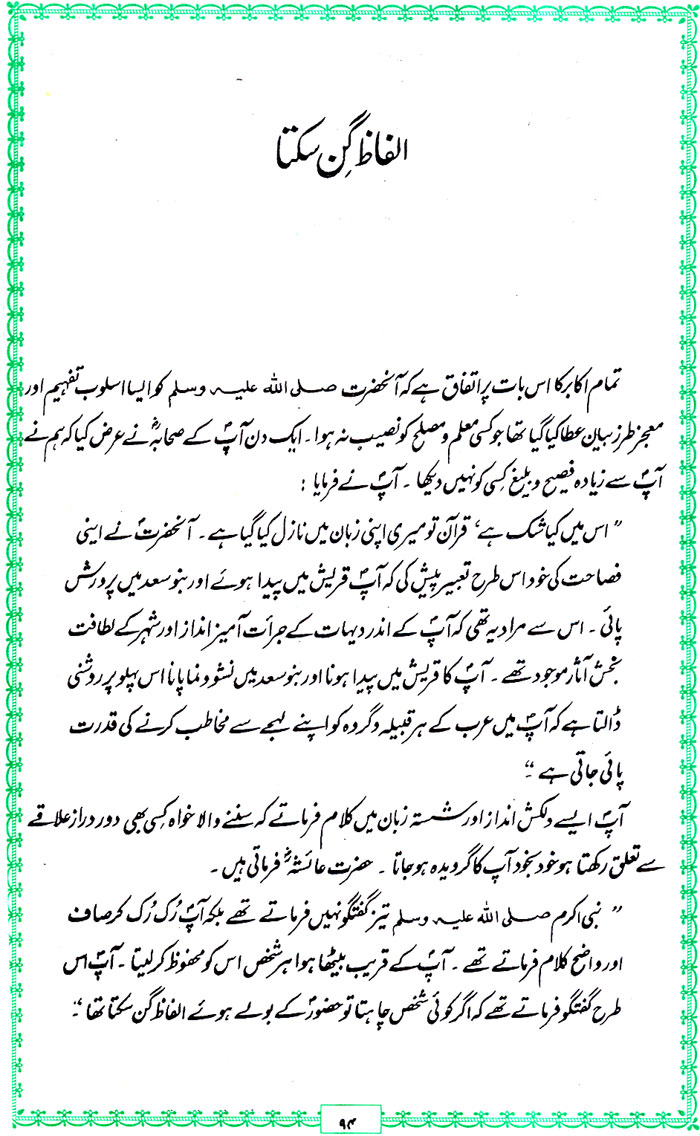 الفاظ گِن سکتا
تمام اکابر کا اس بات پر اتفاق ہے کہ آنحضرت صلی اللہ علیہ وسلم کو ایسا اسلوب تفہیم اور
معجز طرز بیان عطا کیا گیا تھا جو کسی معلم و مصلح کو نصیب نہ ہوا۔ ایک دن آپؐ کے صحابہؓ نے عرض کیا کہ ہم نے
آپؐ سے زیادہ فصیح و بلیغ کسی کو نہیں دیکھا۔ آپؐ نے فرمایا :
" اس میں کیا شک ہے، قرآن تو میری اپنی زبان میں نازل کیا گیا ہے۔ آنحضرتؐ نے اپنی
فصاحت کی خود اس طرح تعبیر پیش کی کہ آپؐ قریش میں پیدا ہوئے اور بنو سعد میں پرورش
پائی۔ اس سے مراد یہ تھی کہ آپؐ کے اندر دیہات کے جرأت آمیز انداز اور شہر کے لطافت
بخش آثار موجود تھے۔ آپؐ کا قریش میں پیدا ہونا اور بنو سعد میں نشو و نما پانا اس پہلو پر روشنی
ڈالتا ہے کہ آپؐ میں عرب کے ہر قبیلہ و گردہ کو اپنے لہجے سے مخاطب کرنے کی قدرت
پائی جاتی ہے ۔"
آپؐ ایسے دلکش انداز اور شستہ زبان میں کلام فرماتے کہ سننے والا خواہ کسی بھی دور دراز علاقے
سے تعلق رکھتا ہو خود بخود آپ کا گرویدہ ہو جاتا۔ حضرت عائشہؓ فرماتی ہیں۔
" نبی اکرم صلی اللہ علیہ وسلم تیز گفتگو نہیں فرماتے تھے بلکہ آپؐ رُک رُک کر صاف
اور واضح کلام فرماتے تھے۔ آپؐ کے قریب بیٹھا ہوا ہر شخص اس کو محفوظ کر لیتا۔ آپؐ اس
طرح گفتگو فرماتے تھے کہ اگر کوئی شخص چاہتا تو حضورؐ کے بولے ہوئے الفاظ گن سکتا تھا ۔"
۹۴